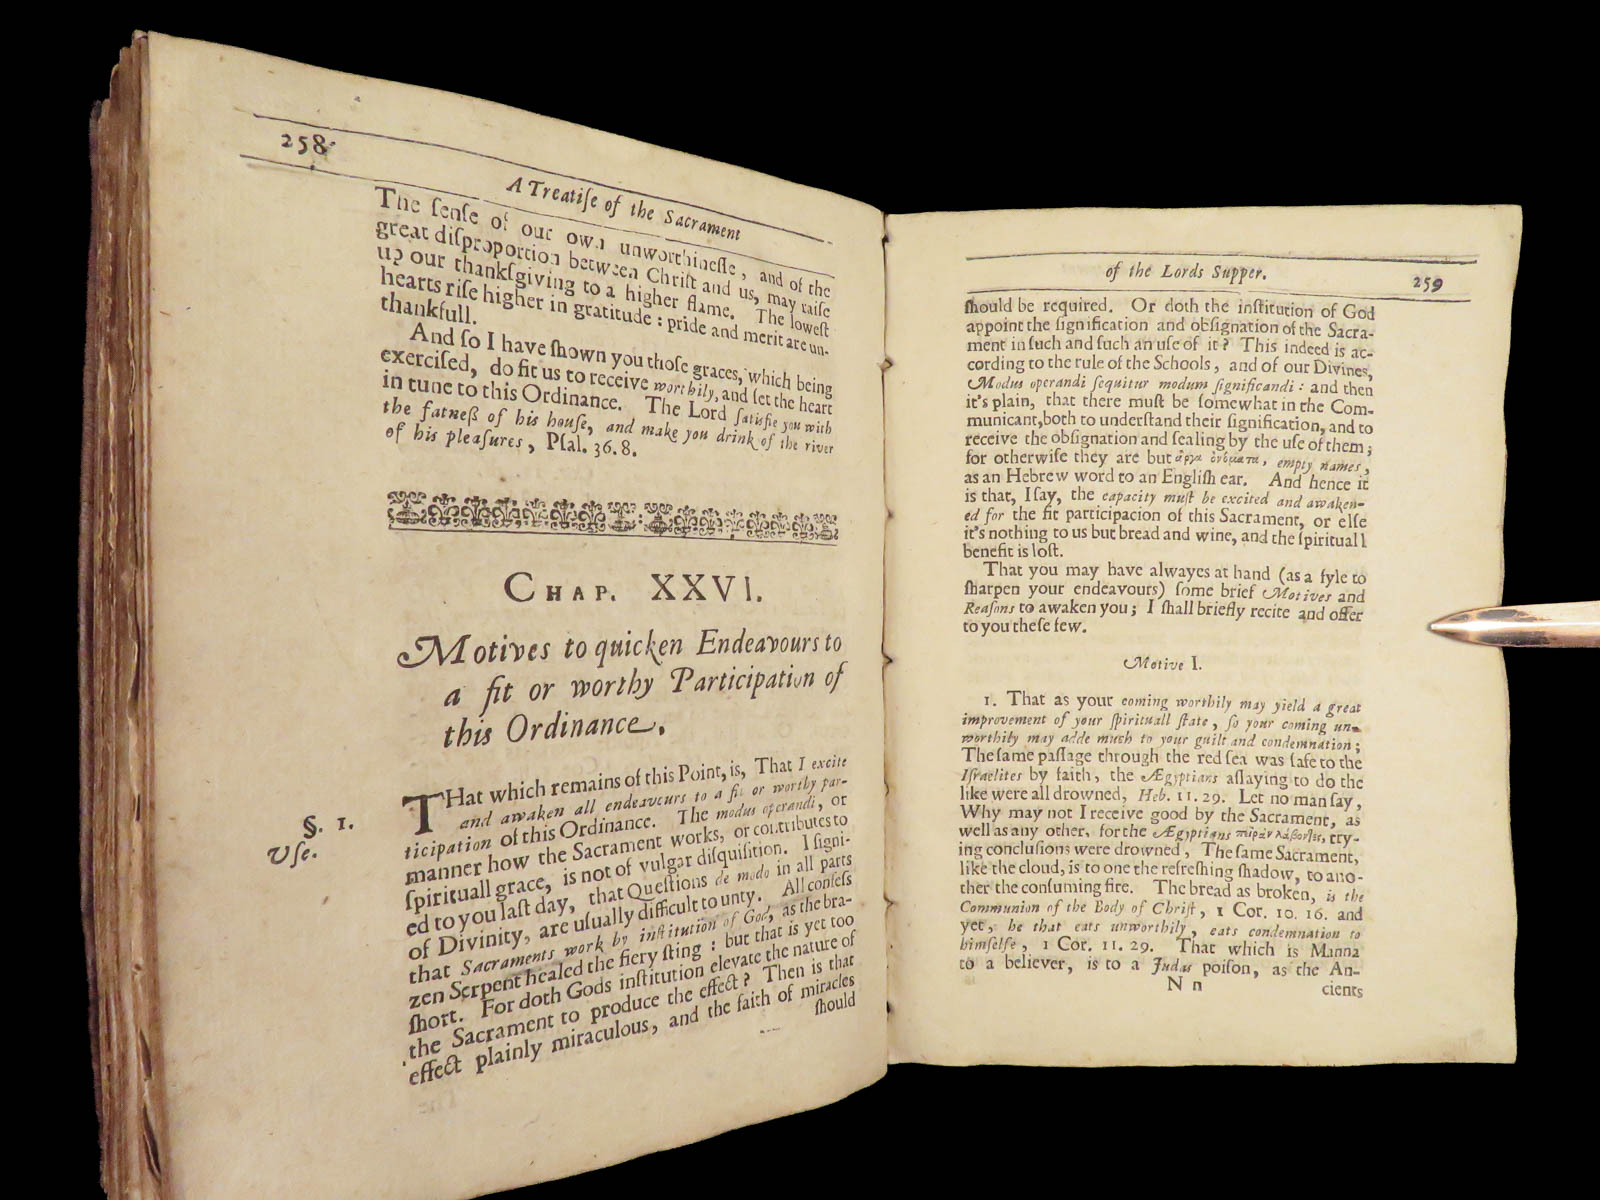 258
A Treatiſe of the Sacrament
The ſenſe of our own unworthineſſe, and of the
great diſproportion between Chriſt and us, may raiſe
up our thankſgiving to a higher flame. The loweſt
hearts riſe higher in gratitude : pride and merit are un-
thankfull.
And ſo I have ſhown you thoſe graces, which being
exerciſed, do fit us to receive worthily, and ſet the heart
in tune to this Ordinance. The Lord ſatisfie you with
the fatneß of his houſe, and make you drink of the river
of his pleaſures, Pſal. 36. 8.
CHAP. XXVI.
Motives to quicken Endeavours to
a fit or worthy Participation of
this Ordinance.
§. 1.
Uſe.
THat which remains of this Point, is, That I excite
and awaken all endeavours to a fit or worthy par-
ticipation of this Ordinance. The modus operandi, or
manner how the Sacrament works, or contributes to
ſpirituall grace, is not of vulgar diſquiſition. I ſigni-
ed to you laſt day, that Queſtions de modo in all parts
of Divinity, are uſually difficult to unty. All confeſs
that Sacraments work by inſtitution of God, as the bra-
zen Serpent healed the fiery ſting : but that is yet too
ſhort. For doth Gods inſtitution elevate the nature of
the Sacrament to produce the effect? Then is that
effect plainly miraculous, and the faith of miracles
ſhould
of the Lords Supper.
259
ſhould be required. Or doth the inſtitution of God
appoint the ſignification and obſignation of the Sacra-
ment in ſuch and ſuch an uſe of it? This indeed is ac-
cording to the rule of the Schools, and of our Divines,
Modus operandi ſequitur modum ſignificandi : and then
it's plain, that there muſt be ſomewhat in the Com-
municant, both to underſtand their ſignification, and to
receive the obſignation and ſealing by the uſe of them;
for otherwiſe they are but ἄργα ὀνόματα, empty names,
as an Hebrew word to an Engliſh ear. And hence it
is that, I ſay, the capacity muſt be excited and awaken-
ed for the fit participacion of this Sacrament, or elſe
it's nothing to us but bread and wine, and the ſpirituall
benefit is loſt.
That you may have alwayes at hand (as a fyle to
ſharpen your endeavours) ſome brief Motives and
Reaſons to awaken you; I ſhall briefly recite and offer
to you theſe few.
Motive I.
1. That as your coming worthily may yield a great
improvement of your ſpirituall ſtate, ſo your coming un-
worthily may adde much to your guilt and condemnation;
The ſame paſſage through the red ſea was ſafe to the
Iſraelites by faith, the Ægyptians aſſaying to do the
like were all drowned, Heb. 11. 29. Let no man ſay,
Why may not I receive good by the Sacrament, as
well as any other, for the Ægyptians πεῖραν λαβόντες, try-
ing concluſions were drowned, The ſame Sacrament,
like the cloud, is to one the refreſhing ſhadow, to ano-
ther the conſuming fire. The bread as broken, is the
Communion of the Body of Chriſt, 1 Cor. 10. 16. and
yet, he that eats unworthily, eats condemnation to
himſelfe, 1 Cor. 11. 29. That which is Manna
to a believer, is to a Judas poiſon, as the An-
N n
cients